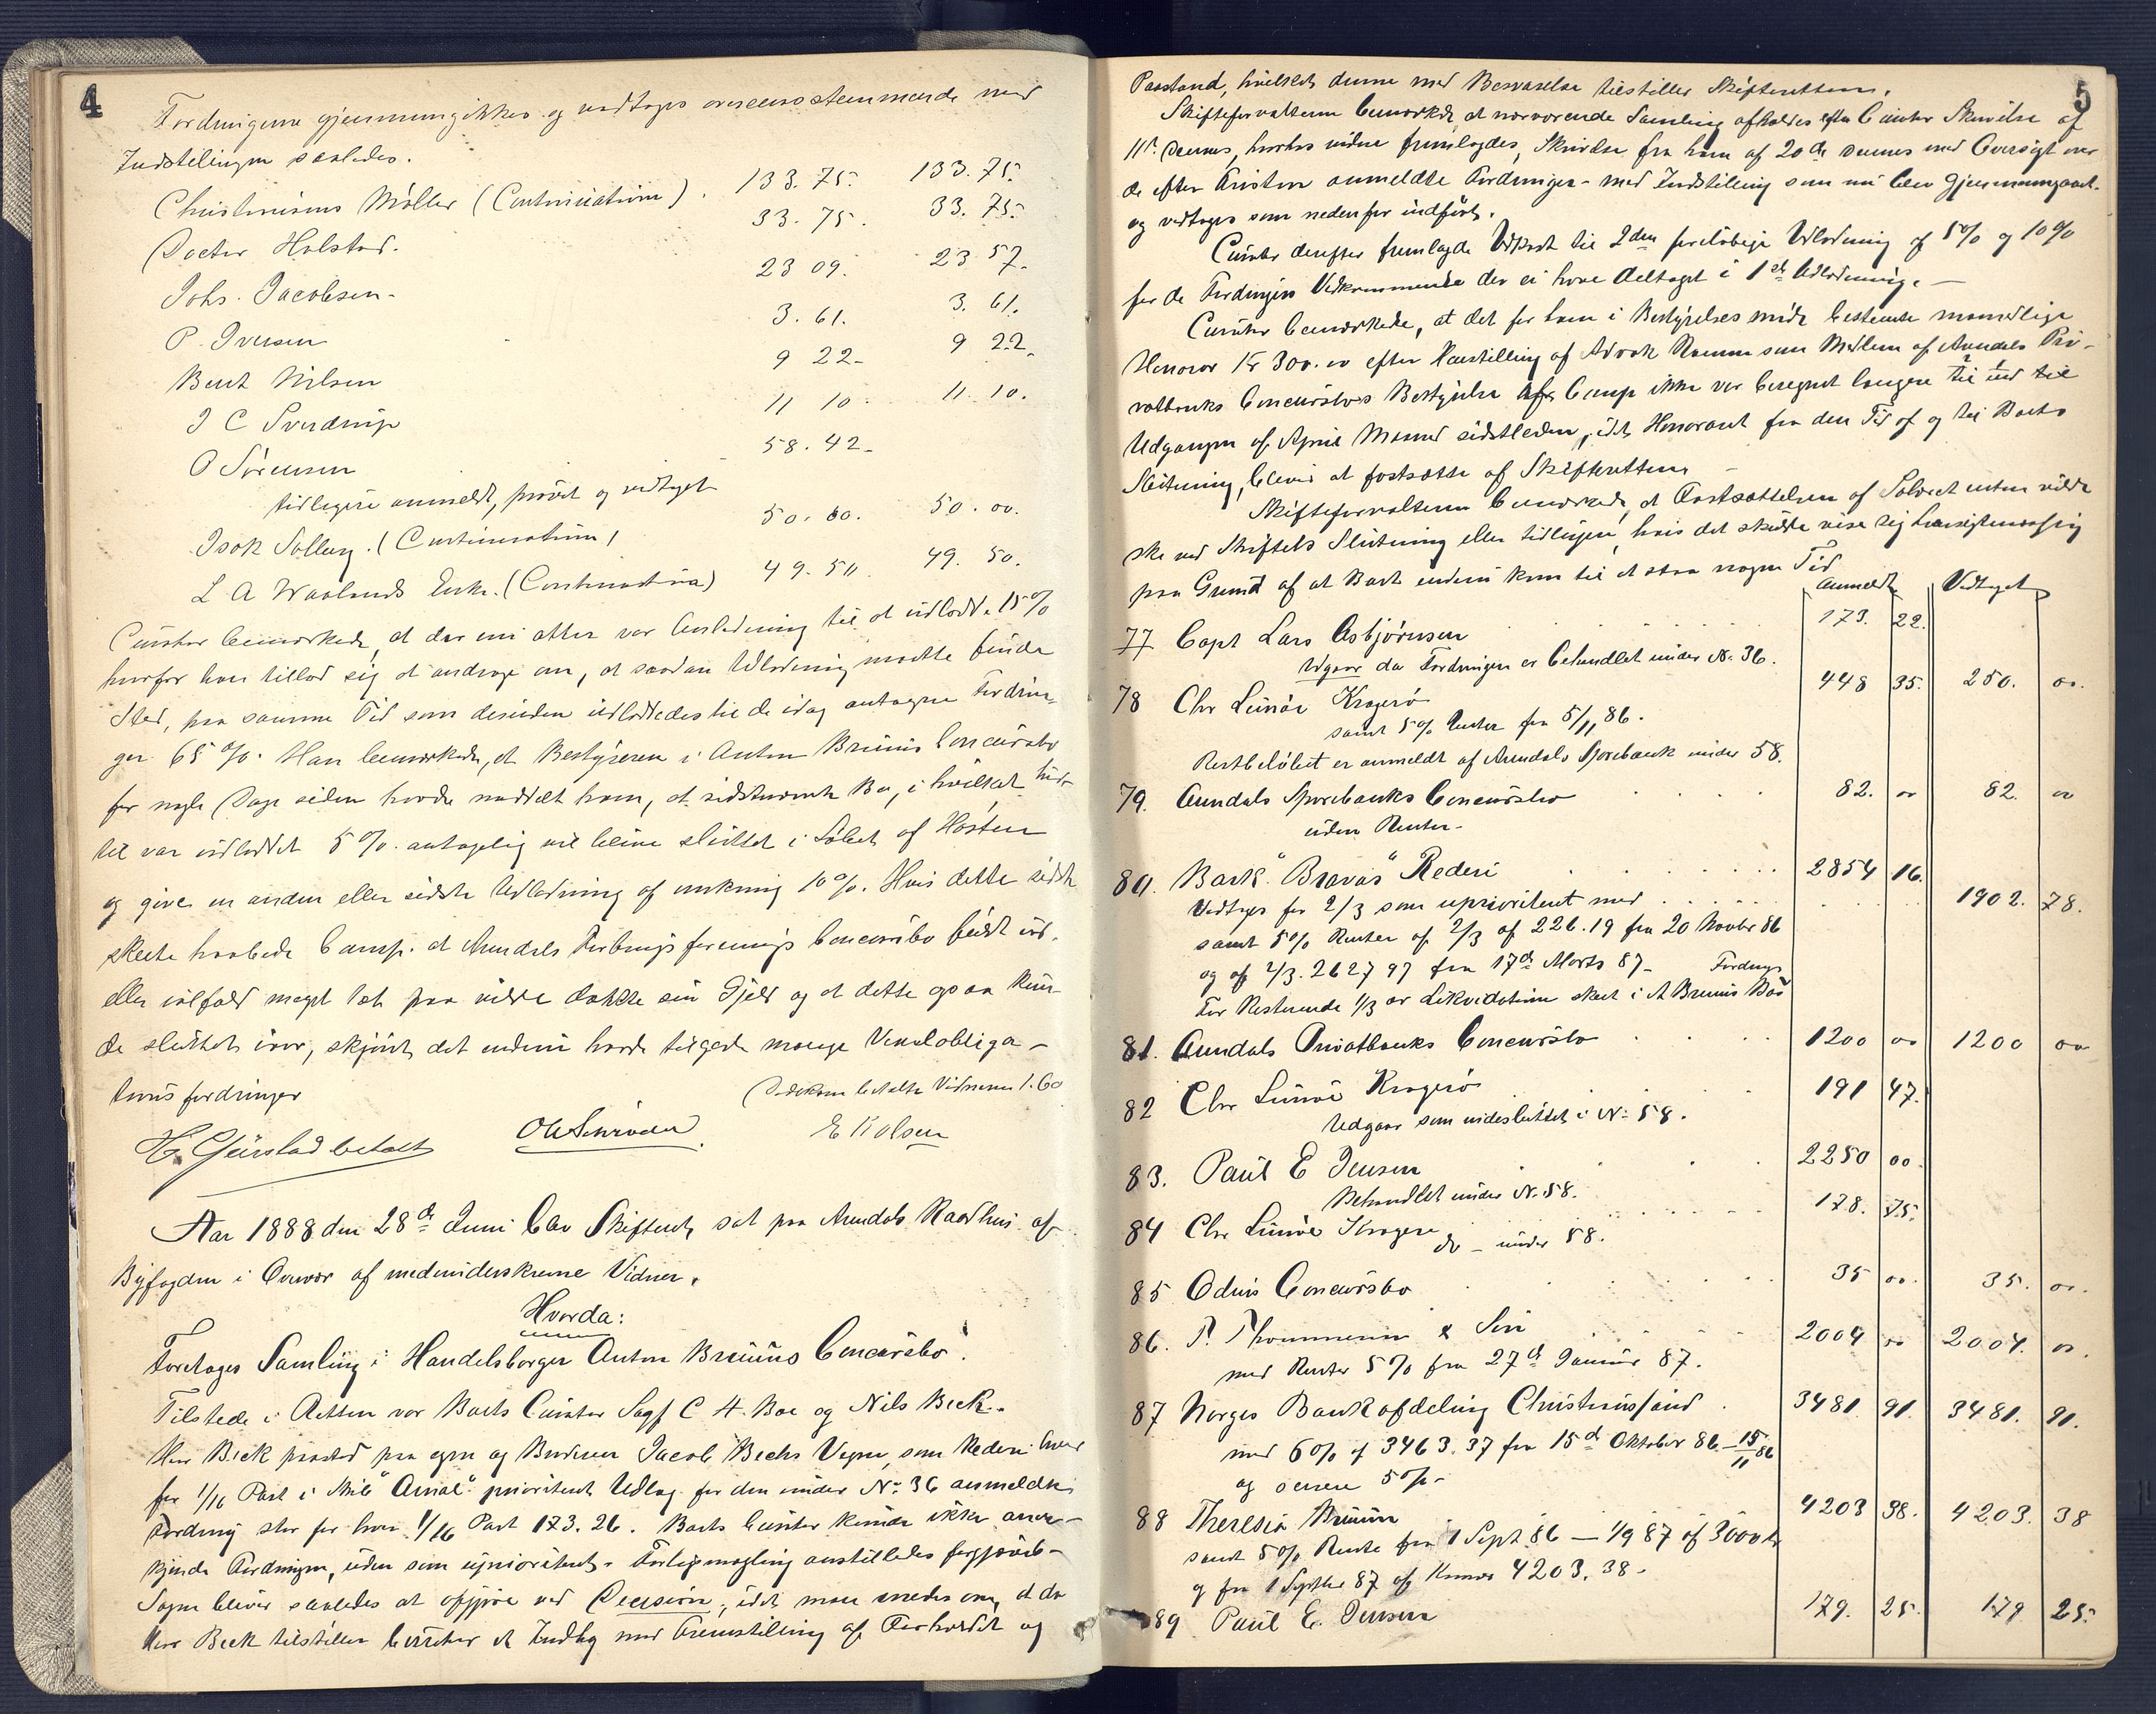 4
Fordringerne gjennemgikkes og vedtoges overensstemmende med
Indstillingen saaledes.
Christensens Møller (Continuation). 133. 75. 133. 75.
Doctor Holstad. 33. 75. 33. 75.
Johs. Jacobsen. 23 09. 23 57.
P. Iversen 3. 61. 3. 61.
Bent Nilsen 9 22. 9 22.
J C Sverdrup 11 10. 11. 10.
O Sørensen 58. 42.
tidligere anmeldt, prøvet og vedtaget
Isak Solberg. (Continuation) 50. 00. 50. 00.
L A Waalands Enke. (Continuation) 49. 50. 49. 50.
Curator bemærkede, at der nu atter var Anledning til at udlodde 15%
hvorfor han tillod sig at andrage om, at saadan Udlodning maatte finde
Sted, paa samme Tid som desuden udloddedes til de idag antagne Fordrin-
ger 65%. Han bemærkede, at Bestyreren i Anton Bruuns Concursbo
for nogle Dage siden havde meddelt ham, at sidstnævnte Bo, i hvilket hid-
til var udloddet 5%. antagelig vil blive sluttet i Løbet af Høsten
og give en anden eller sidste Udlodning af omkring 10%. Hvis dette sidste
skeete haabede Comp. at Arendals Forbrugsforenings Concursbo fuldt ud,
eller ialfald meget tæt paa vilde dække sin Gjeld og at dette ogsaa kun-
de sluttes iaar, skjønt det endnu havde tilgode mange Vexelobliga-
tionsfordringer
Dødsboen betalte Vidnerne 1.60
H. Gjurstad betalt O A Schrøder E K Olsen
Aar 1888 den 28de Juni blev Skifteret sat paa Arendals Raadhus af
Byfogden i Overvær af medunderskrevne Vidner.
Hvorda:
Foretoges Samling i Handelsborger Anton Bruuns Concursbo.
Tilstede i Retten var Boets Curator Sagf C H. Boe og Nils Beck.
Herr Beck paastod paa egne og Broderen Jacob Becks Vegne, som Rederi hver
for 1/16 Part i Skib "Arnal" prioriteret Udlæg for den under No 36 anmeldte
Fordring stor for hver 1/16 Part 173. 26. Boets Curator kunde ikke aner-
kjende Fordringen, uden som uprioriteret. Forligsmægling anstilledes forgjæves.
Sagen bliver saaledes at afgjøre ved Decision, idet man enedes om, at da
Herr Beck tilstiller Curator et Indlæg med Fremstilling af Forholdet og
5
Paastand, hvilket denne med Besvarelse tilstiller Skifteretten.
Skifteforvalteren bemærkede, at nærværende Samling afholdes efter Curators Skrivelse af
11te dennes, hvorhos videre fremlagdes, Skrivelse fra ham af 20de dennes med Oversigt over
de efter Fristen anmeldte Fordringer med Indstilling som nu blev gjennemgaaet.
og vedtoges som nedenfor indført.
Curator derefter fremlagde Udkast til 2den foreløbige Udlodning af 5% og 10%
for de Fordringers Vedkommende der ei have deltaget i 1ste Udlodning. —
Curator bemærkede, at det for ham i Bestyrelsesmøde bestemte maanedlige
Honorar Kr 300. 00 efter Henstilling af Advok som Medlem af Arendals Pri-
vatbanks Concursbos Bestyrelse af Comp ikke var beregnet længere til end til
Udgangen af April Maaned sidstleden, idet Honoraret fra den Tid af og til Boets
Slutning, blev at fastsætte af Skifteretten —
Skifteforvalteren bemærkede, at Fastsættelsen af Salæret enten vilde
ske ved Skiftets Slutning eller tidligere, hvis det skulde vise sig hensigtsmæssig
paa Grund af at Boet endnu kom til at staa nogen Tid
Anmeldt Vedtaget
77 Capt Lars Asbjørnsen 173. 22.
Udgaar da Fordringen er behandlet under No 36.
78 Chr Lunøe Kragerø 448 35. 250. 00.
samt 5% Renter fra 5/11 86.
Restbeløbet er anmeldt af Arendals Sparebank under 58.
79. Arendals Sparebanks Concursbo 82. 00 82. 00
uden Renter.
80. Bark "Bravas" Rederi 2854 16.
Vedtages for 2/3 som uprioriteret med 1902. 78.
samt 5% Renter af 2/3 af 226.19 fra 20 Novbr 86
og af 2/3. 2627 97 fra 17de Marts 87.
For Resterende 1/3 er Likvidation skeet i A Bruuns Bos Fordrings
81. Arendals Privatbanks Concursbo 1200 00 1200 00
82 Chr Lunøe Kragerø 191 47.
Udgaar som indesluttet i No 58.
83. Paul E Jensen 2250 00.
Behandlet under No 58.
84 Chr Lunøe Kragerø 178. 75.
do — under 58.
85 Odins Concursbo 35 00. 35. 00.
86. P. Thommesen & Søn 2004 00 2004. 00.
med Renter 5% fra 27de Januar 87.
87 Norges Bankafdeling Christianssand 3481 91. 3481. 91.
med 6% af 3463.37 fra 15de Oktober 86 — 15/11 86
og senere 5%.
88 Theresia Bruun 4203 38. 4203. 38
samt 5% Rente fra 1 Sept 86 — 1/9 87 af 3000 kr
og fra 1 Septbr 87 af Kroner 4203. 38.
89 Paul E. Jensen 179. 25. 179 25.